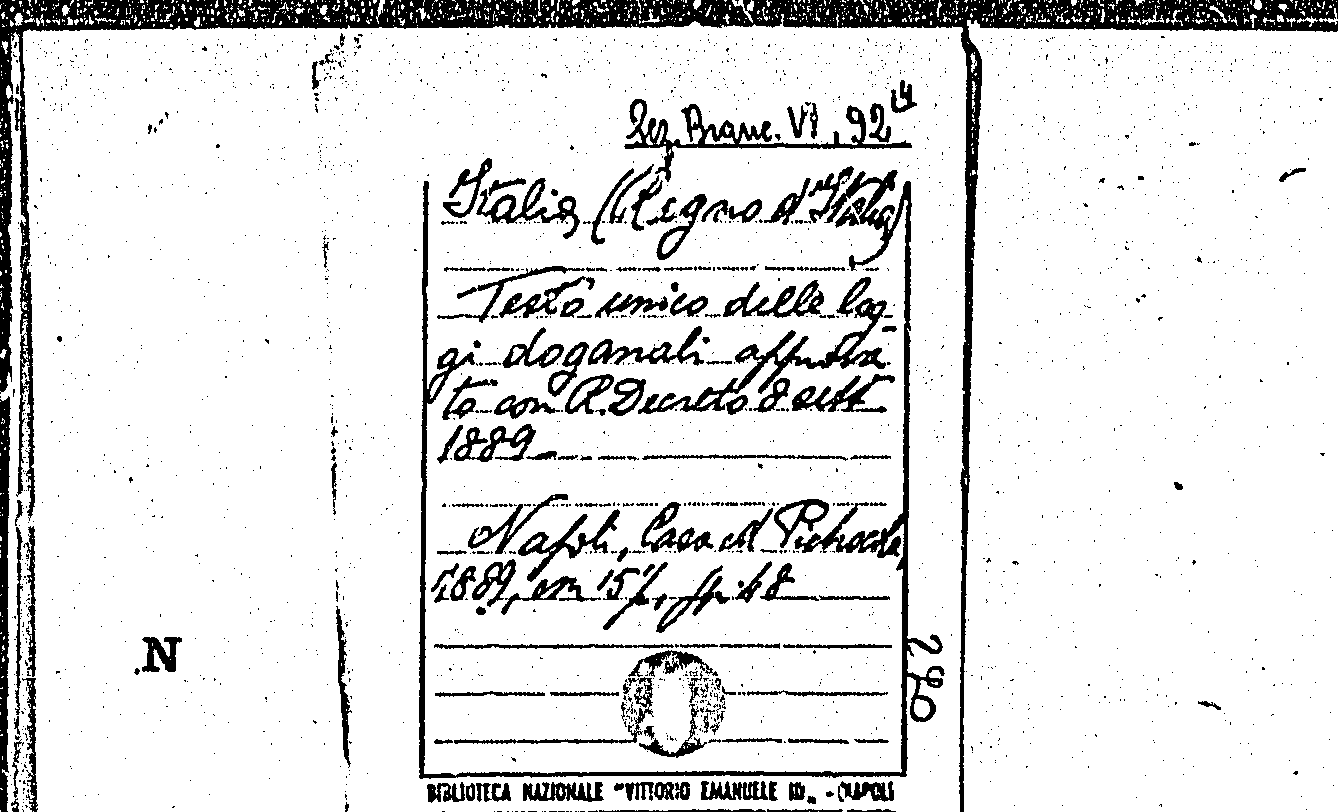 Sez. Branc. VI, 92 14
Italia (Regno d'Italia)
Testo unico delle leg-
gi doganali approva
to con R. Decreto 8 sett.
1889_
Napoli, Casa ed Pietrocola,
1889, cm 15½, pp. 48
N
290
BIBLIOTECA NAZIONALE "VITTORIO EMANUELE III" - NAPOLI